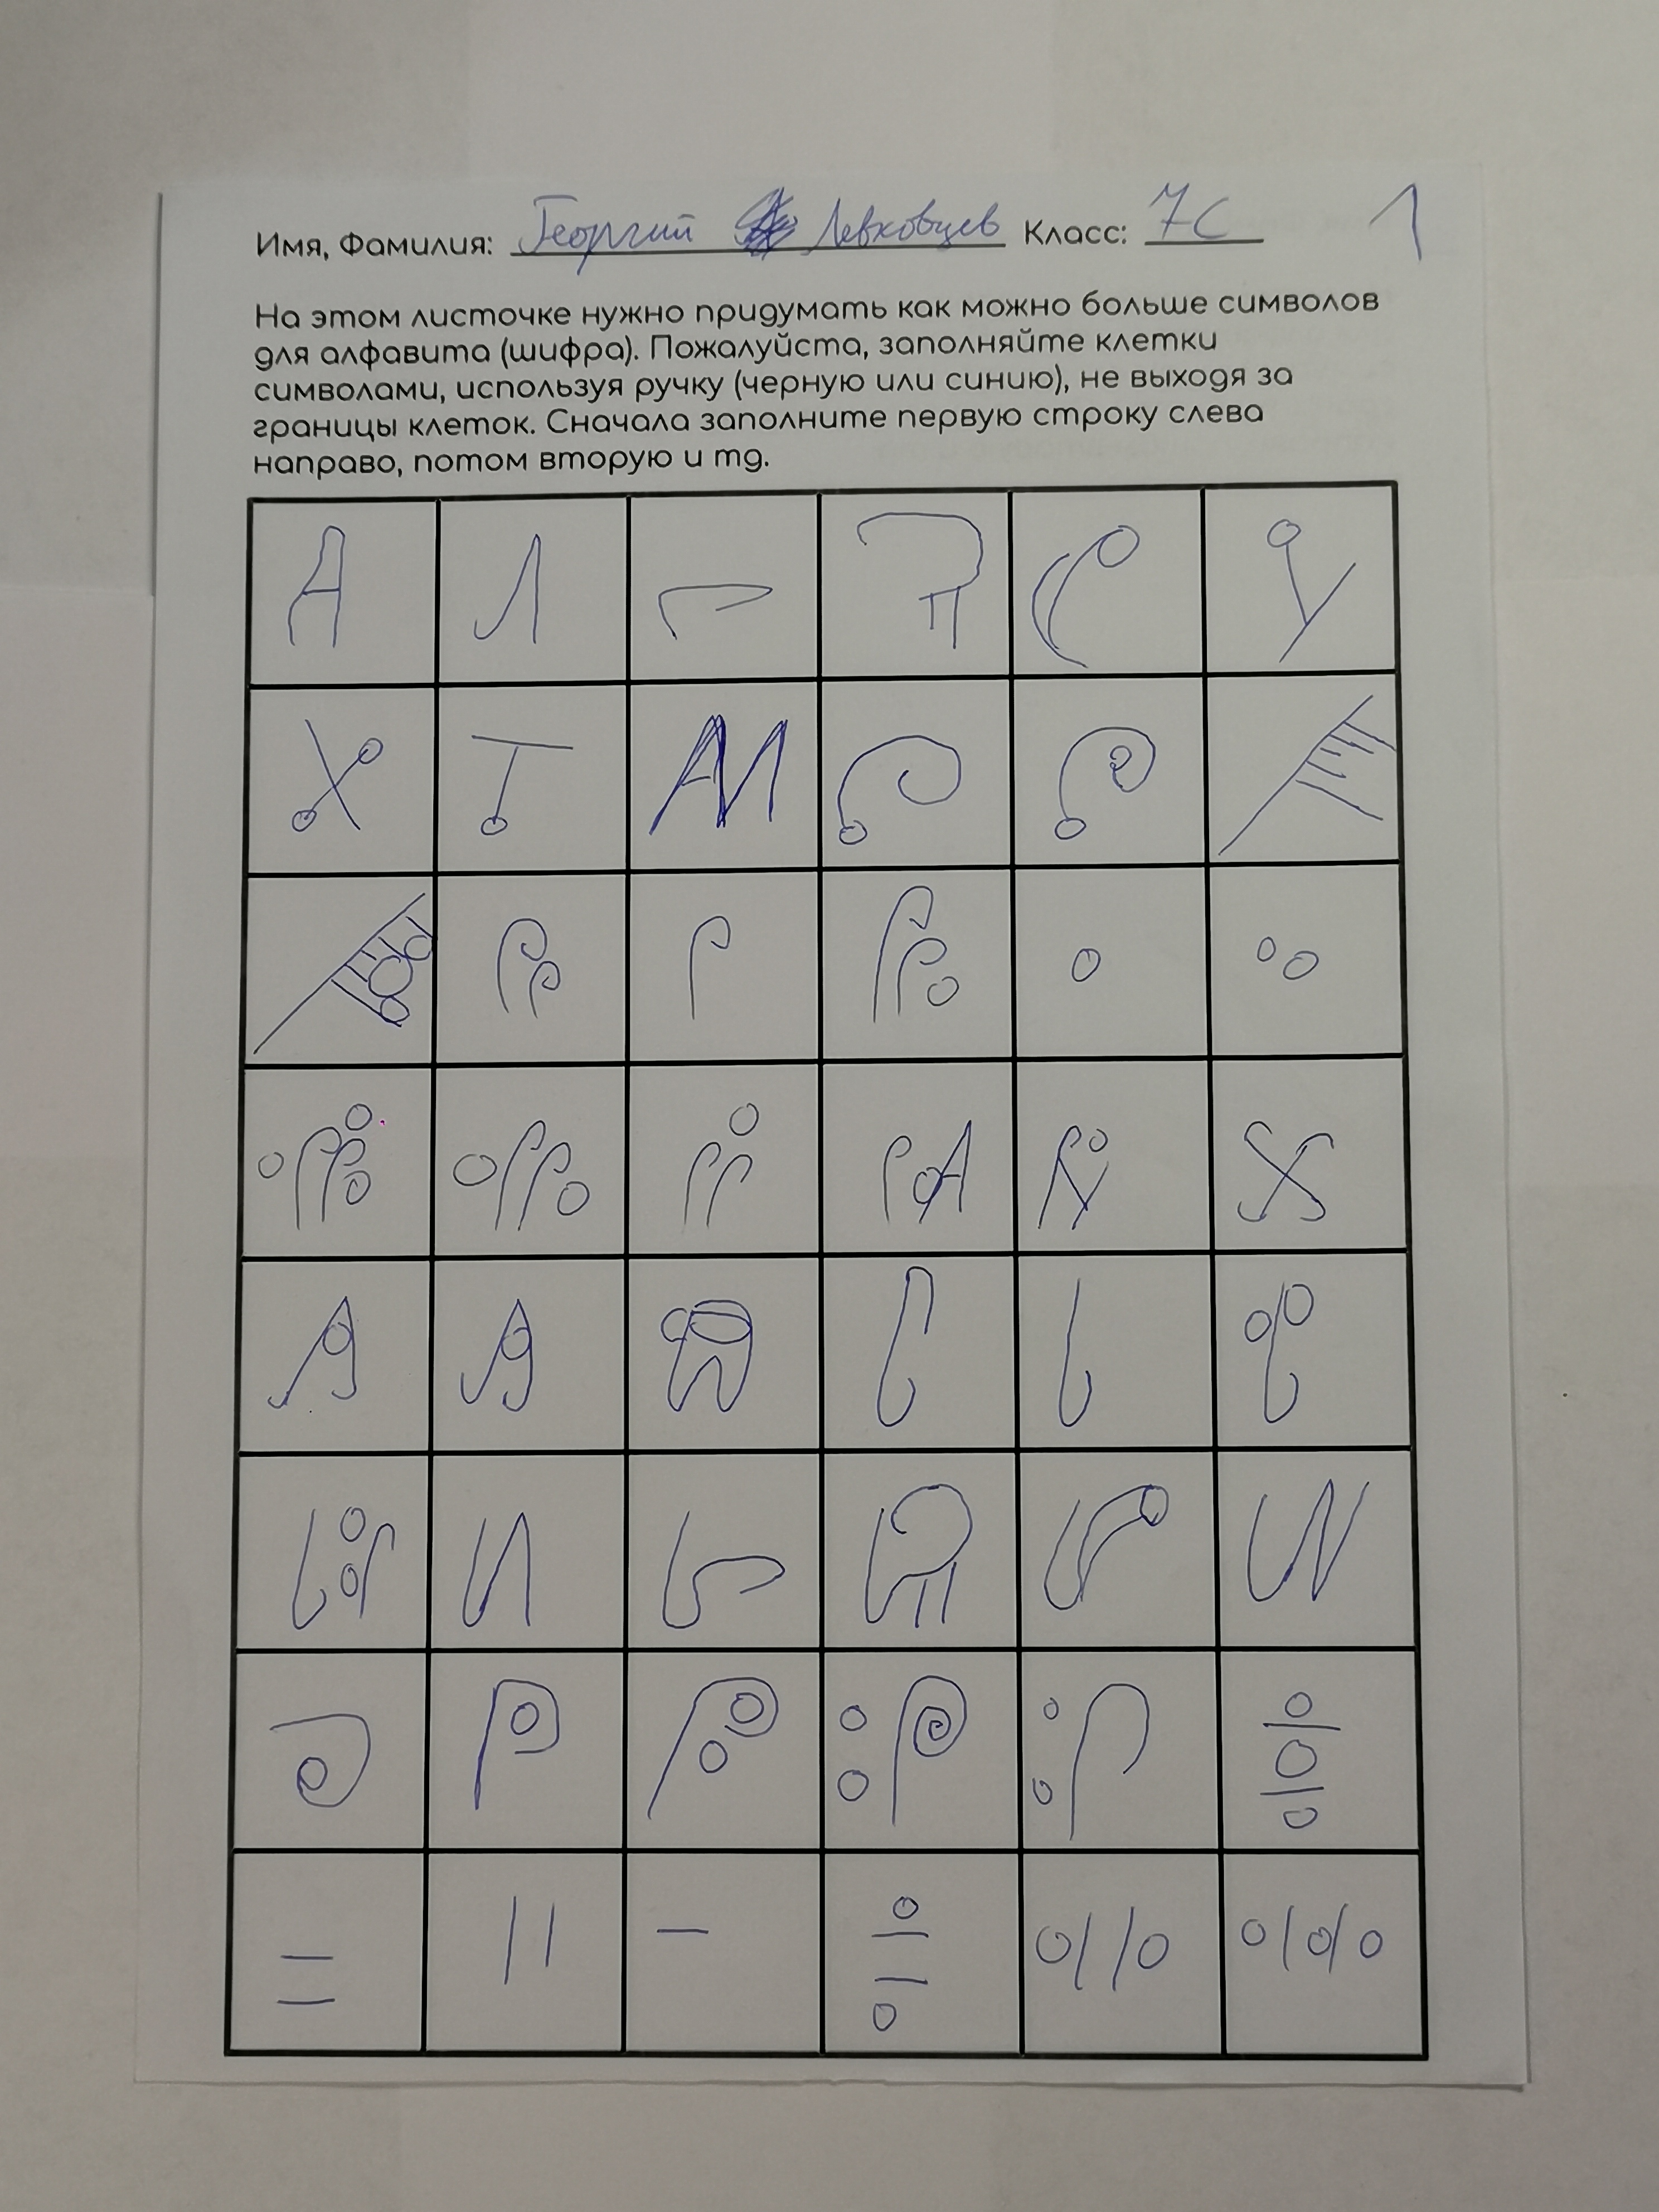 Имя, Фамилия: Георгий Левковцев Класс: 7С 1
На этом листочке нужно придумать как можно больше символов
для алфавита (шифра). Пожалуйста, заполняйте клетки
символами, используя ручку (черную или синию), не выходя за
границы клеток. Сначала заполните первую строку слева
направо, потом вторую и тд.